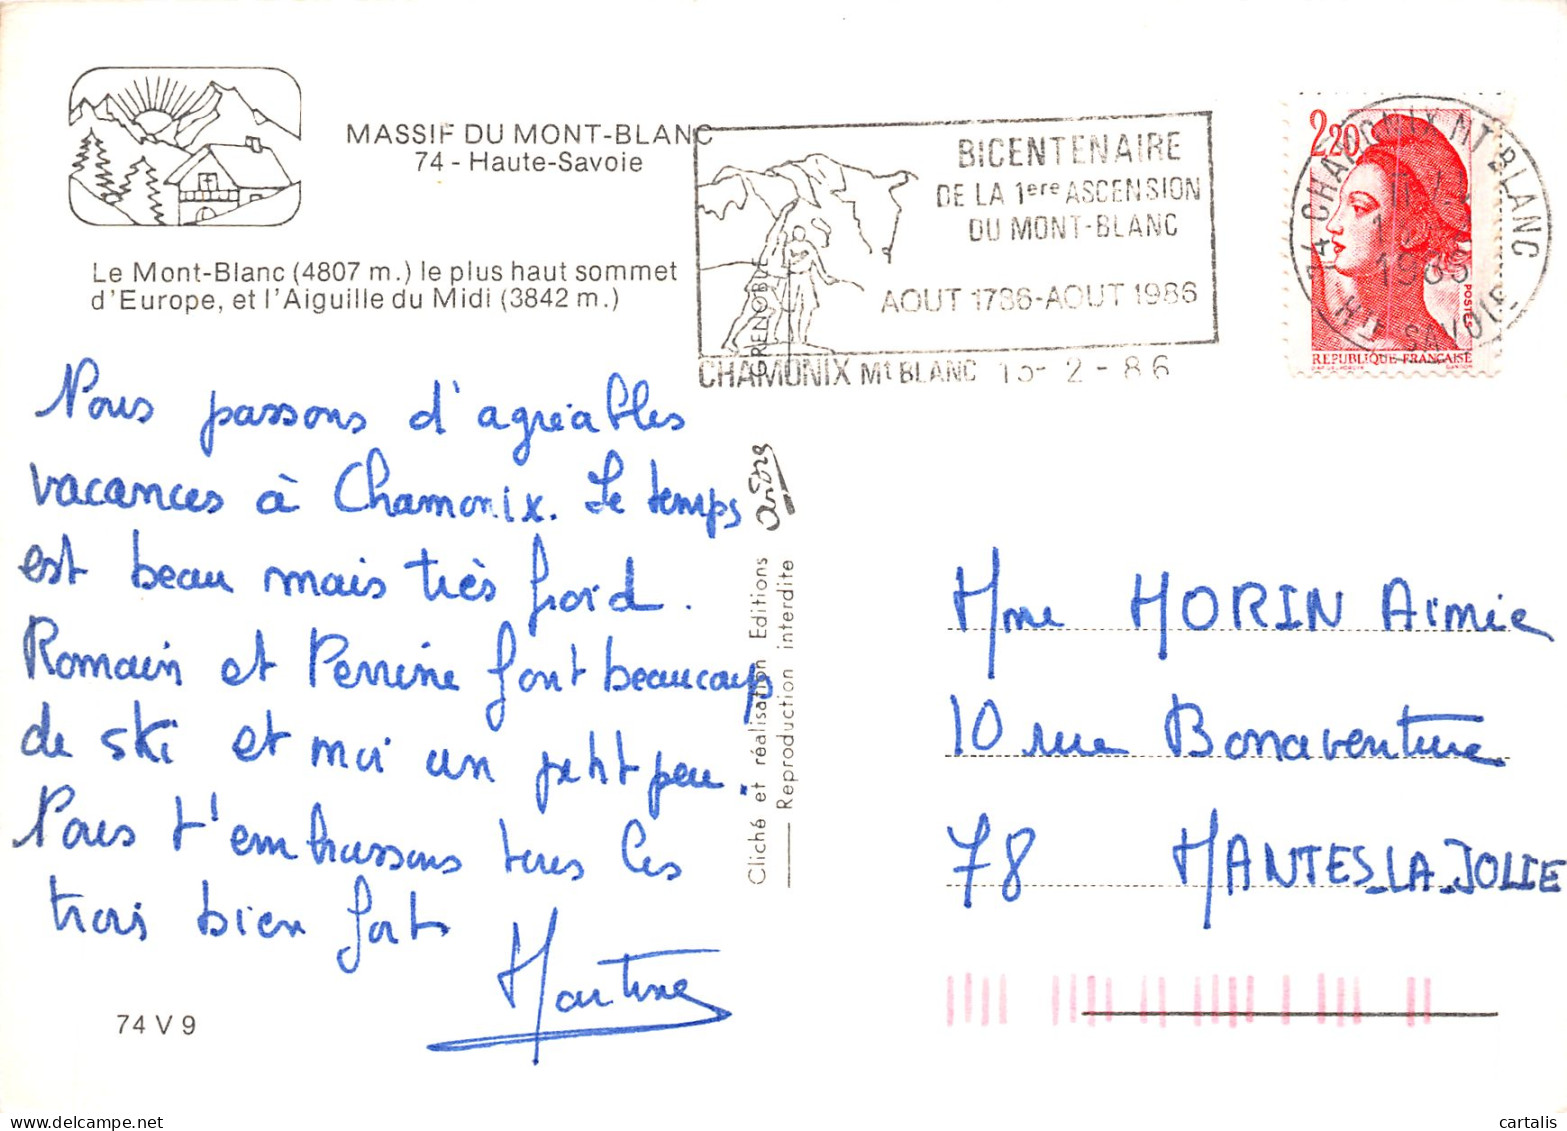 MASSIF DU MONT-BLANC
74 - Haute-Savoie
Le Mont-Blanc (4807 m.) le plus haut sommet
d'Europe, et l'Aiguille du Midi (3842 m.)
BICENTENAIRE
DE LA 1ere ASCENSION
DU MONT-BLANC
AOUT 1786-AOUT 1986
CHAMONIX Mt BLANC 15- 2 - 86
2,20
POSTES
REPUBLIQUE FRANÇAISE
74 CHAMONIX MT BLANC
Hte SAVOIE
Nous passons d'agréables
vacances à Chamonix. Le temps
est beau mais très froid.
Romain et Perrine font beaucoup
de ski et moi un petit peu.
Nous t'embrassons tous les
trois bien fort
Martine
74 V 9
GRENOBLE
André
Cliché et réalisation Editions
Reproduction interdite
Mme MORIN Aimée
10 rue Bonaventure
78 MANTES-LA-JOLIE
cartalis